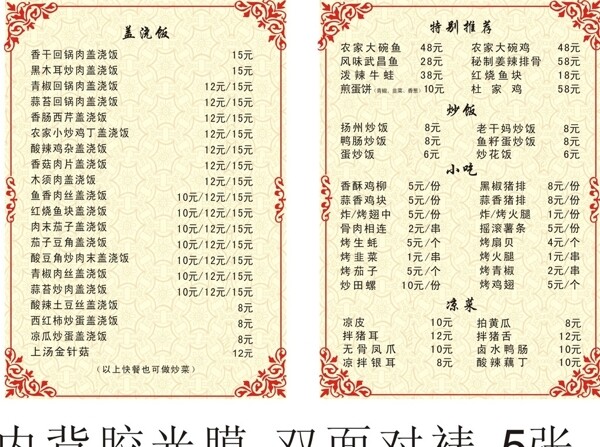 盖浇饭
香干回锅肉盖浇饭 15元
黑木耳炒肉盖浇饭 15元
青椒回锅肉盖浇饭 12元/15元
蒜苔回锅肉盖浇饭 12元/15元
香肠西芹盖浇饭 12元/15元
农家小炒鸡丁盖浇饭 12元/15元
酸辣鸡杂盖浇饭 12元/15元
香菇肉片盖浇饭 12元/15元
木须肉盖浇饭 12元/15元
鱼香肉丝盖浇饭 10元/12元/15元
红烧鱼块盖浇饭 10元/12元/15元
肉末茄子盖浇饭 10元/12元/15元
茄子豆角盖浇饭 10元/12元/15元
酸豆角炒肉末盖浇饭 10元/12元/15元
青椒肉丝盖浇饭 10元/12元/15元
蒜苔炒肉盖浇饭 10元/12元/15元
酸辣土豆丝盖浇饭 8元
西红柿炒蛋盖浇饭 8元
凉瓜炒蛋盖浇饭 8元
上汤金针菇 12元
(以上快餐也可做炒菜)
特别推荐
农家大碗鱼 48元 农家大碗鸡 48元
风味武昌鱼 28元 秘制姜辣排骨 58元
泼辣牛蛙 38元 红烧鱼块 18元
煎蛋饼(青椒、韭菜、香葱) 10元 杜家鸡 58元
炒饭
扬州炒饭 8元 老干妈炒饭 8元
鸭肠炒饭 8元 鱼籽蛋炒饭 8元
蛋炒饭 6元 炒花饭 6元
小吃
香酥鸡柳 5元/份 黑椒猪排 8元/份
蒜香鸡块 5元/份 蒜香猪排 8元/份
炸/烤翅中 5元/份 炸/烤火腿 1元/份
骨肉相连 2元/串 摇滚薯条 5元/份
烤生蚝 5元/个 烤扇贝 4元/个
烤韭菜 1元/串 烤火腿 1元/串
烤茄子 5元/个 烤青椒 2元/串
炒田螺 10元/份 烤鸡翅 5元/个
凉菜
凉皮 10元 拍黄瓜 8元
拌猪耳 12元 拌猪舌 12元
无骨凤爪 10元 卤水鸭肠 10元
凉拌银耳 8元 酸辣藕丁 10元
内背胶光膜 双面对裱 5张